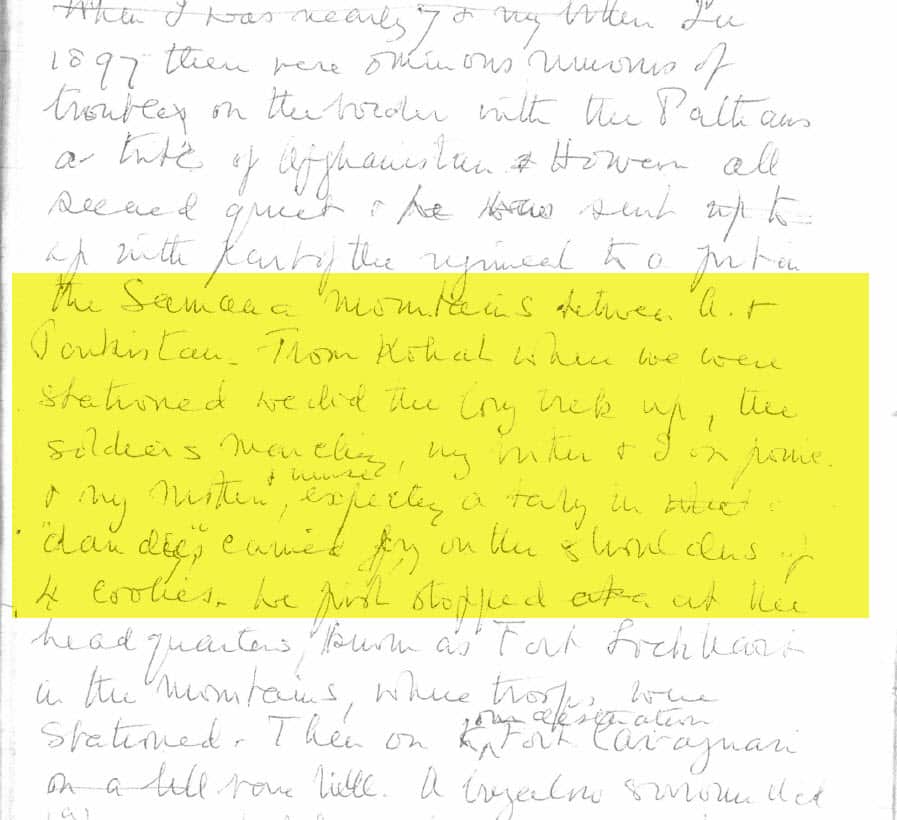 When I was nearly 7 & my brother
1897 there were ominous rumours of
troubles on the border with the Pathans
a tribe of Afghanistan & However all
seemed quiet & he was sent up to
up with part of the regiment to a fort in
the Samana mountains between A. &
Parkistan. From Kohat where we were
stationed we did the long trek up, the
soldiers marching, my brother & I on ponie
& my Mother & nurse, expecting a baby in
"dandies" carried on the shoulders of
4 coolies. We first stopped at the
headquarters, known as Fort Lockhart
in the mountains, where troops were
stationed. Then on our destination Fort Cavagnari
on a hill. A bungalow surrounded